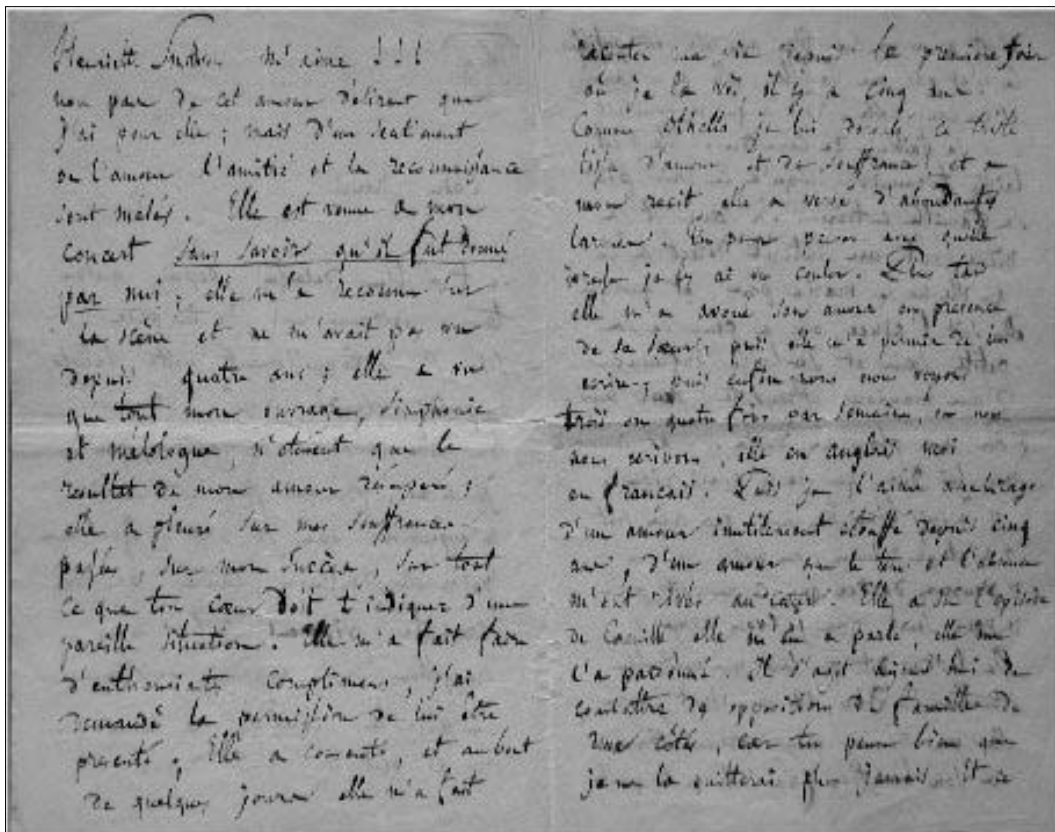 Henriette Smithson m'aime !!!
non pas de cet amour délirant que
j'ai pour elle ; mais d'un sentiment
où l'amour l'amitié et la reconnaissance
sont mêlés. Elle est venue à mon
concert sans savoir qu'il fut donné
par moi ; elle m'a reconnu sur
la scène et ne m'avait pas vu
depuis quatre ans ; elle a vu
que tout mon ouvrage, Symphonie
et mélologue, n'étaient que le
resultat de mon amour
elle a pleuré sur mes souffrances
passées, sur mon succès, sur tout
ce que ton cœur doit t'indiquer d'une
pareille situation. Elle m'a fait faire
d'enthousiastes complimens, j'ai
demandé la permission de lui être
présenté, Elle a consenti, et au bout
de quelques jours elle m'a fait
raconter ma vie depuis la première fois
où je la vis, il y a cinq ans.
Comme Othello je lui ce triste
d'amour et de souffrance, et à
mon récit elle a versé d'abondantes
larmes. pas
je les ai vu couler. Plus tard
elle m'a avoué son amour en présence
de sa sœur, puis elle m'a permis de lui
écrire, puis enfin nous nous voyons
trois ou quatre fois par semaine, ou nous
nous écrivons, elle en anglais moi
en français. Puis je l'aime
d'un amour inutilement étouffé depuis cinq
ans, d'un amour que le tems et l'absence
m'ont au cœur. Elle a su l'épisode
de Camille elle m'en a parlé, elle me
l'a pardonné. Il s'agit aujourd'hui de
combattre des oppositions de famille de
côtés, car tu penses bien que
je ne la quitterai plus jamais. Et